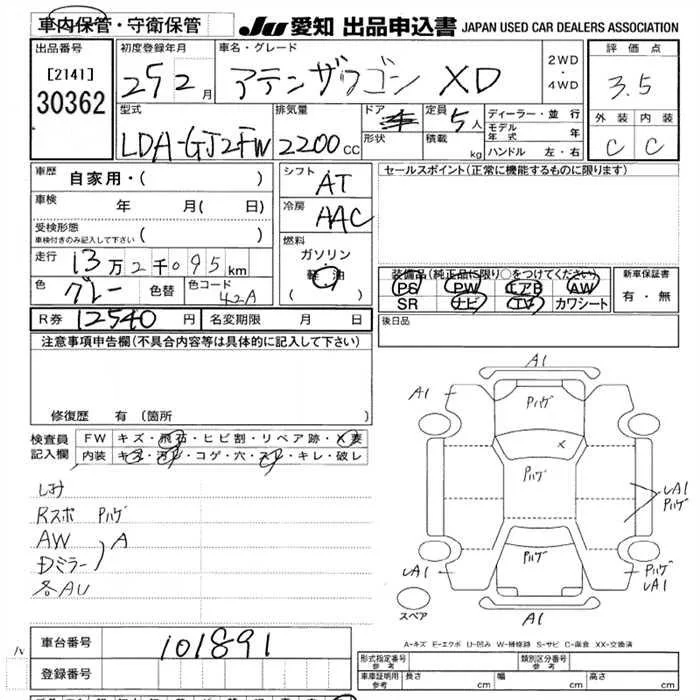 車内保管・守衛保管
JU 愛知 出品申込書 JAPAN USED CAR DEALERS ASSOCIATION
出品番号
[2141]
30362
初度登録年月
29 2月
車名・グレード
アテンザワゴン XD
2WD
・
4WD
評価点
3.5
外装 内装
C C
型式
LDA-GJ2FW
排気量
2200CC
ドア
形状
定員
5人
積載
kg
ディーラー・並行
モデル年式 年
ハンドル 左・右
車歴
自家用・( )
車検 年 月( 日)
受検形態
車検付きのみ記入して下さい ( )
走行 13万2千095km
色 グレー 色替 色コード 42A
シフト
AT
冷房
AAC
燃料
ガソリン
・
軽油
( )
セールスポイント(正常に機能するものに限ります)
装備品(純正品に限り○をつけてください)
PS PW エアB AW
SR ナビ TV カワシート
新車保証書
有・無
後日品
R券 12540円 名変期限 月 日
注意事項申告欄(不具合内容等は具体的に記入して下さい)
修復歴 有(箇所 )
検査員記入欄
FW キズ・飛石・ヒビ割・リペア跡・X要
内装 キズ・汚レ・コゲ・穴・スレ・キレ・破レ
しみ
Rスポ Pハゲ
AW
Dミラー A
各AU
A1
A1
Pハゲ
X
Pハゲ
UA1
Pハゲ
Pハゲ
UA1
Pハゲ
UA1
A1
スペア
A-キズ E-エクボ U-凹み W-補修跡 S-サビ C-腐食 XX-交換済
車台番号 101891
登録番号
形式指定番号
参考
類別区分番号
参考
車庫証明用
参考
長さ cm 幅 cm 高さ cm